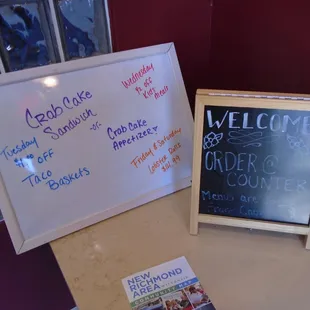 Crab Cake
Sandwich
-OR-
Crab Cake
Appetizer!
Tuesday
OFF
Taco Baskets
Wednesday
½ off
Kids
Meals
Friday & Saturday
Lobster Roll
WELCOME
ORDER @
COUNTER
Menus are
NEW
RICHMOND
AREA
COMMUNITY MAP